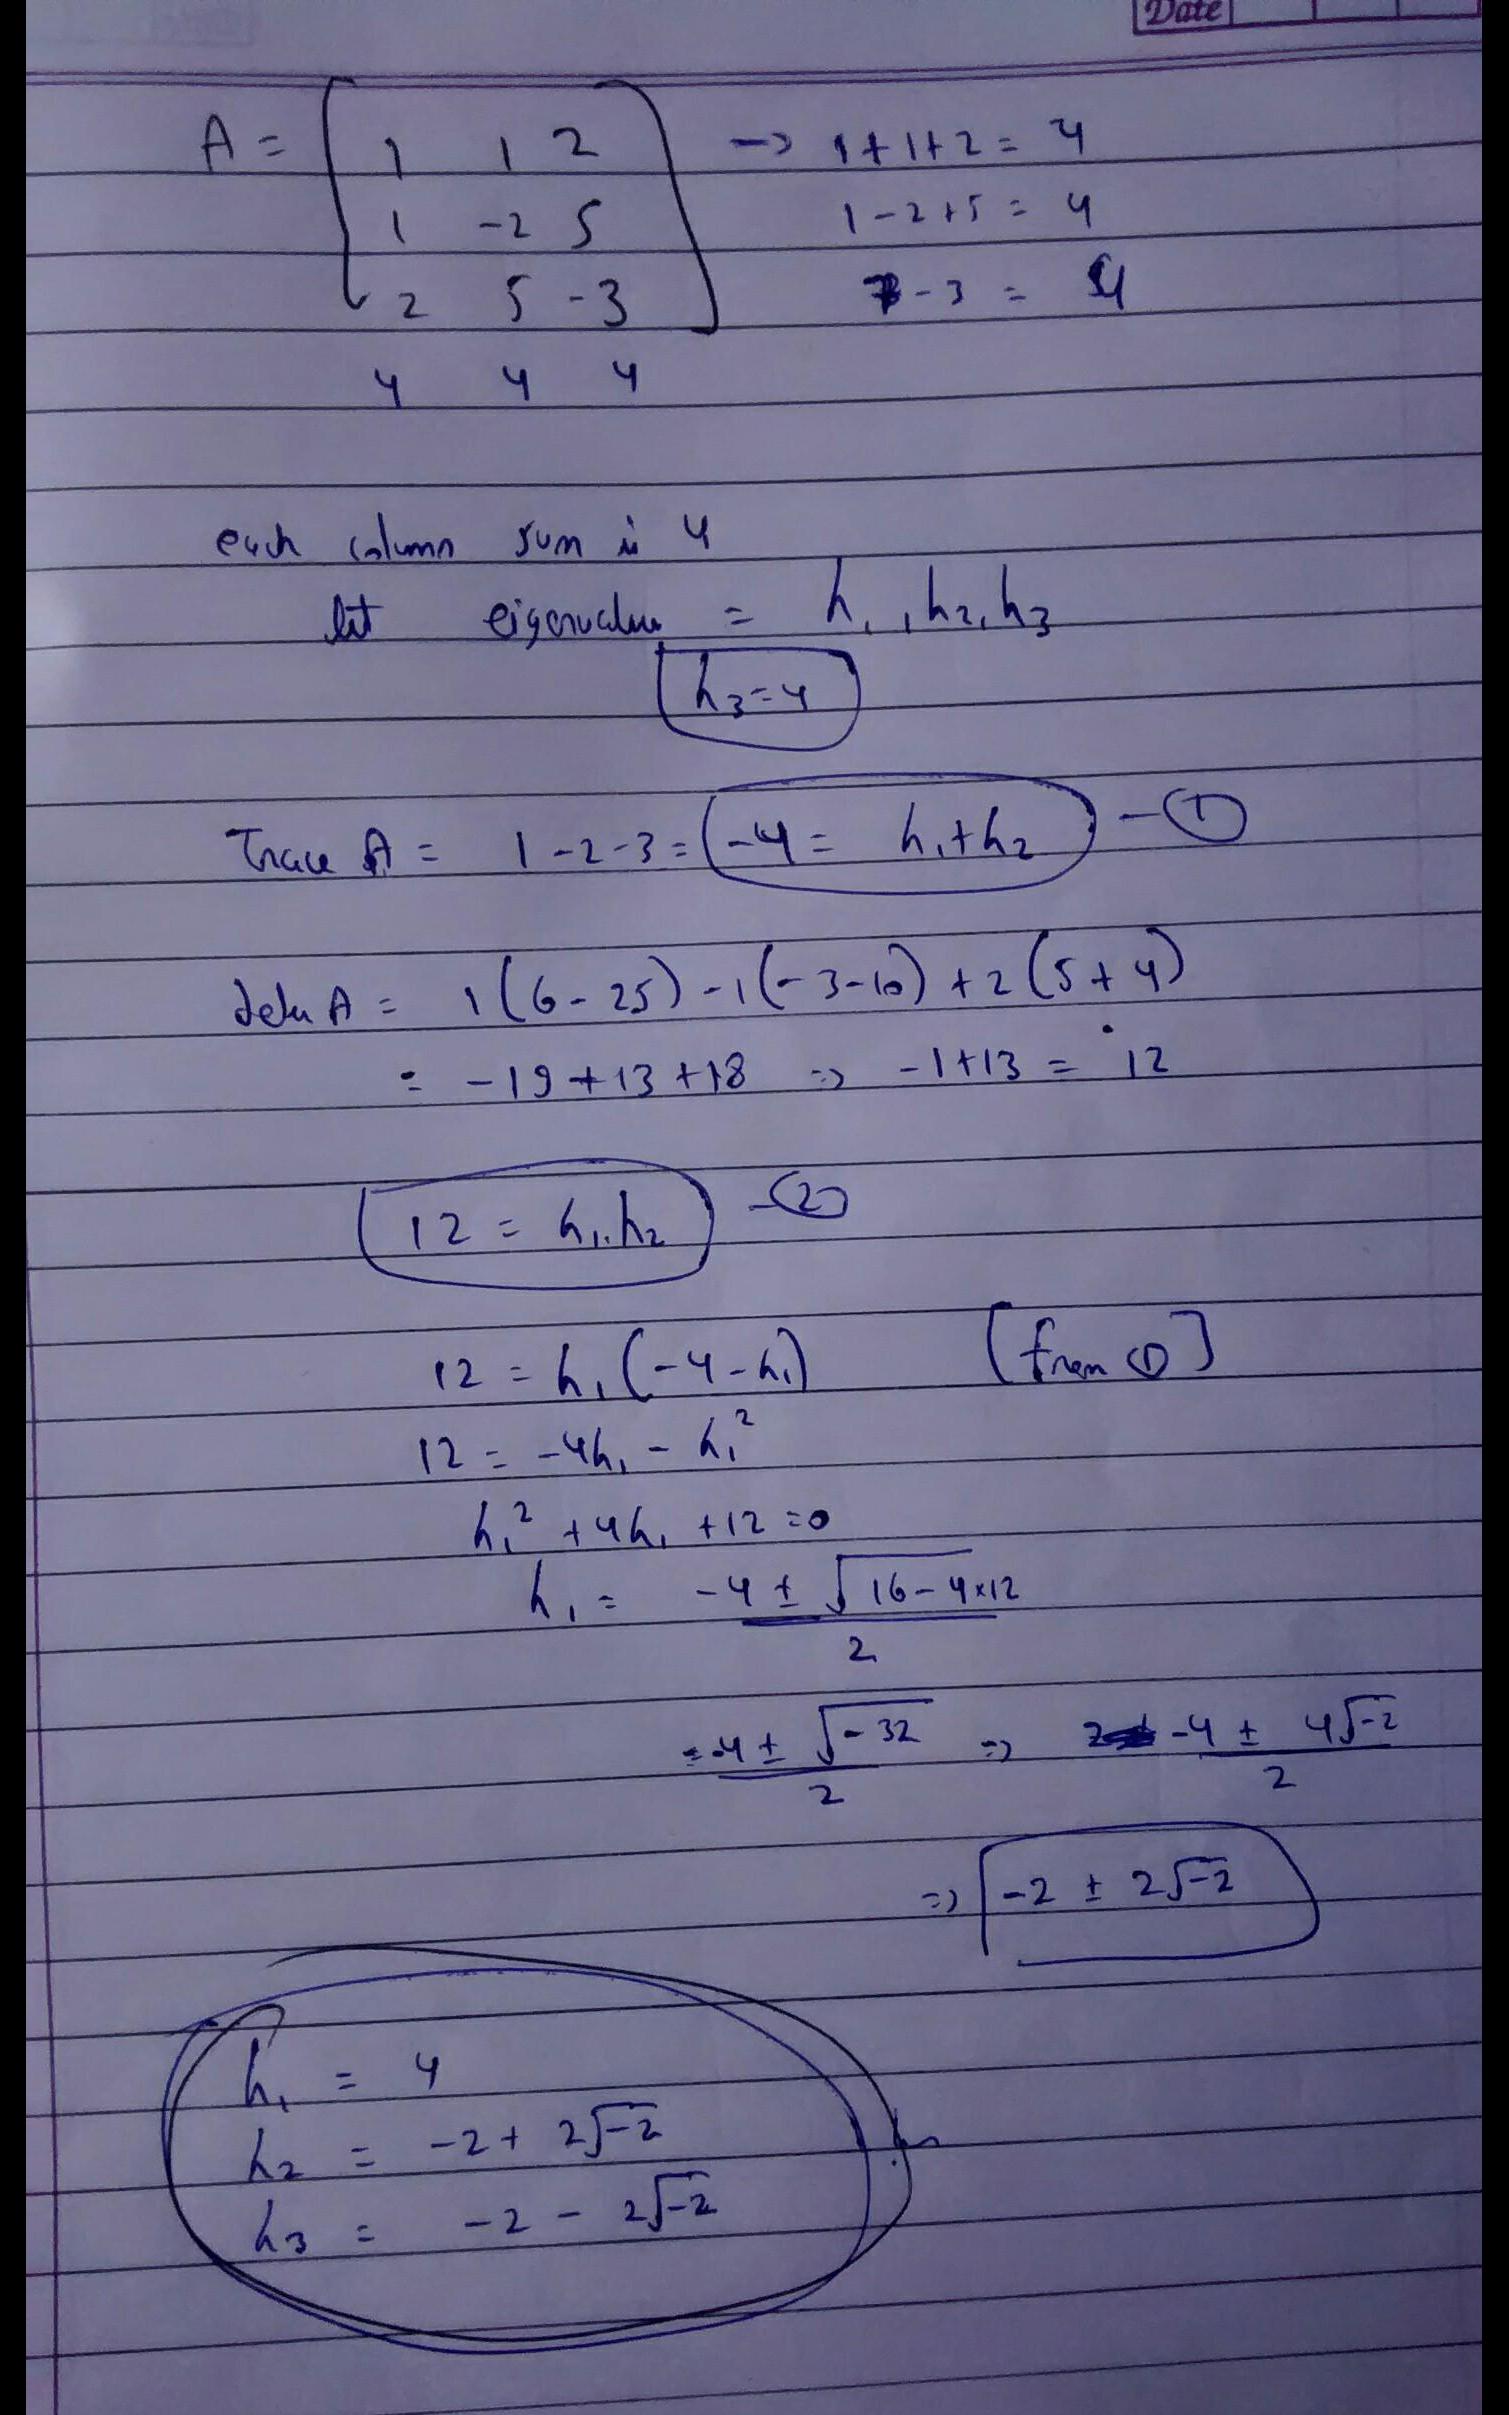 Date
A = [ 1 1 2 → 1+1+2 = 4
1 -2 5 1-2+5 = 4
2 5 -3 ] 7-3 = 4
4 4 4
each column sum is 4
let eigenvalue = λ₁, λ₂, λ₃
λ₃ = 4
Trace A = 1-2-3 = -4 = λ₁+λ₂ -①
A = 1(6-25) -1(-3-10) +2(5+4)
= -19+13+18 ⇒ -1+13 = 12
12 = λ₁.λ₂ -②
12 = λ₁(-4-λ₁) [from ①]
12 = -4λ₁ - λ₁²
λ₁² + 4λ₁ + 12 = 0
λ₁ = -4 ± √16-4×12 / 2
= -4 ± √-32 / 2 ⇒ -4 ± 4√-2 / 2
⇒ -2 ± 2√-2
λ₁ = 4
λ₂ = -2 + 2√-2
λ₃ = -2 - 2√-2